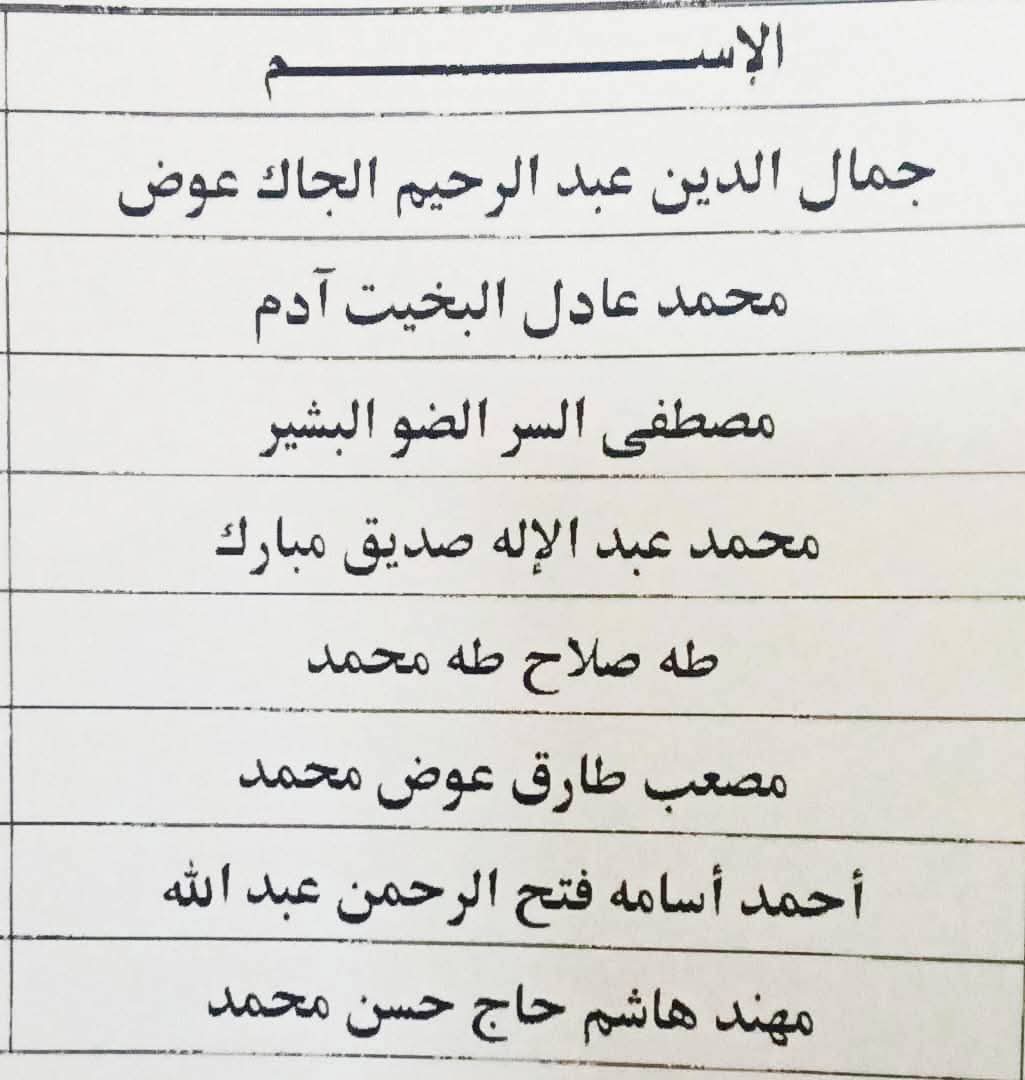 الإســـــــــــــــــم
جمال الدين عبد الرحيم الجاك عوض
محمد عادل البخيت آدم
مصطفى السر الضو البشير
محمد عبد الإله صديق مبارك
طه صلاح طه محمد
مصعب طارق عوض محمد
أحمد أسامه فتح الرحمن عبد الله
مهند هاشم حاج حسن محمد